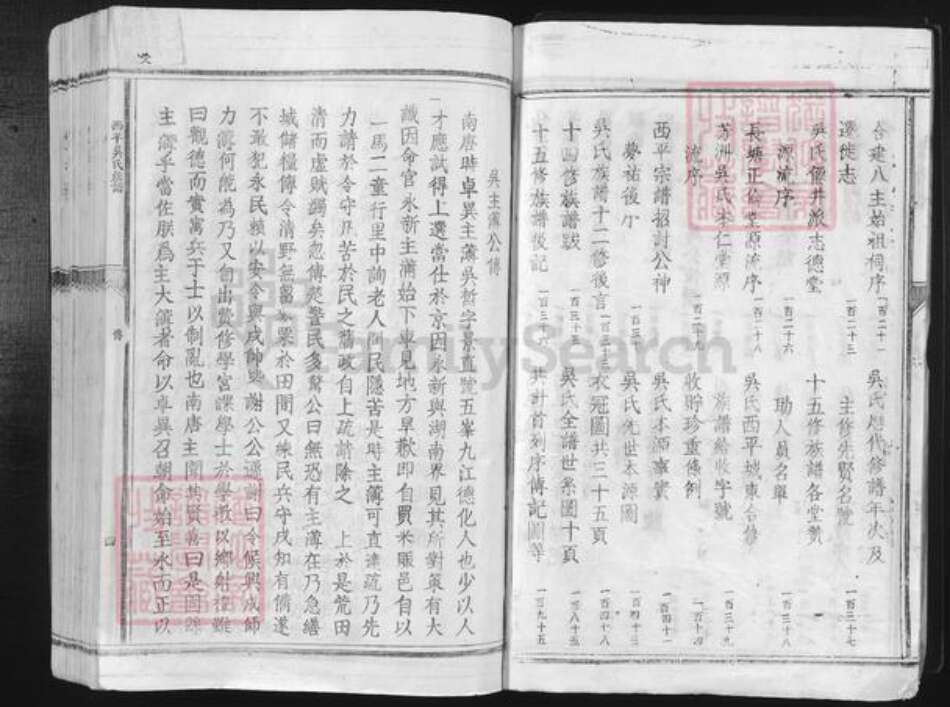 合建八主始祖祠序 一百二十一
遷徙志 一百二十三
吳氏價井派志德堂
源流序 一百二十六
長塘正倫堂原流序 一百二十八
芳洲吳氏本仁堂源
流序 一百二十九
西平宗譜招討公神
夢祐後 一百三十
吳氏族譜十二修後言 一百三十三
十四修族譜跋 一百三十五
十五修族譜後記 一百三十六
吳氏歷代修譜年次及
主修先賢名號 一百三十七
十五修族譜各堂贊
助人員名單 一百三十八
吳氏西平城東合修
族譜給收字號 一百三十九
收貯珍重條例 一百四十
吳氏本源事實 一百四十一
吳氏先世本源圖 一百四十三
衣冠圖共三十五頁 一百四十八
吳氏全譜世系圖十頁 一百八十五
共計首刻序傳記圖等 一百九十五
西平吳氏族譜
傳
四
吳主簿公傳
南唐時卓異主簿吳哲字景直號五峯九江德化人也少以人
才應試得上選當仕於京因永新與湖南界見其所對策有大
識因命官永新主簿始下車見地方旱歉即自買米賑邑自以
一馬二童行里中詢老人問民隱苦是時主簿可直達疏乃先
力請於令守並苦於民之舊政自上疏請除之 上於是荒田
清而虛賦蠲矣忽傳楚警民多驚公曰無恐有主薄在乃急繕
城儲糧傳令清野無蓄粟於田間又練民兵守戍知有備遂
不敢犯永民賴以安令與戍帥與謝公公遜謝曰令候與戍師
力簿何能為乃又自出貲修學宮課學士於學激以鄉射禮雖
曰觀德而實寓兵于士以制亂也南唐主聞其賢喜曰是固
主簿乎當佐朕爲主大簿者命以卓異召朝命始至永而正以